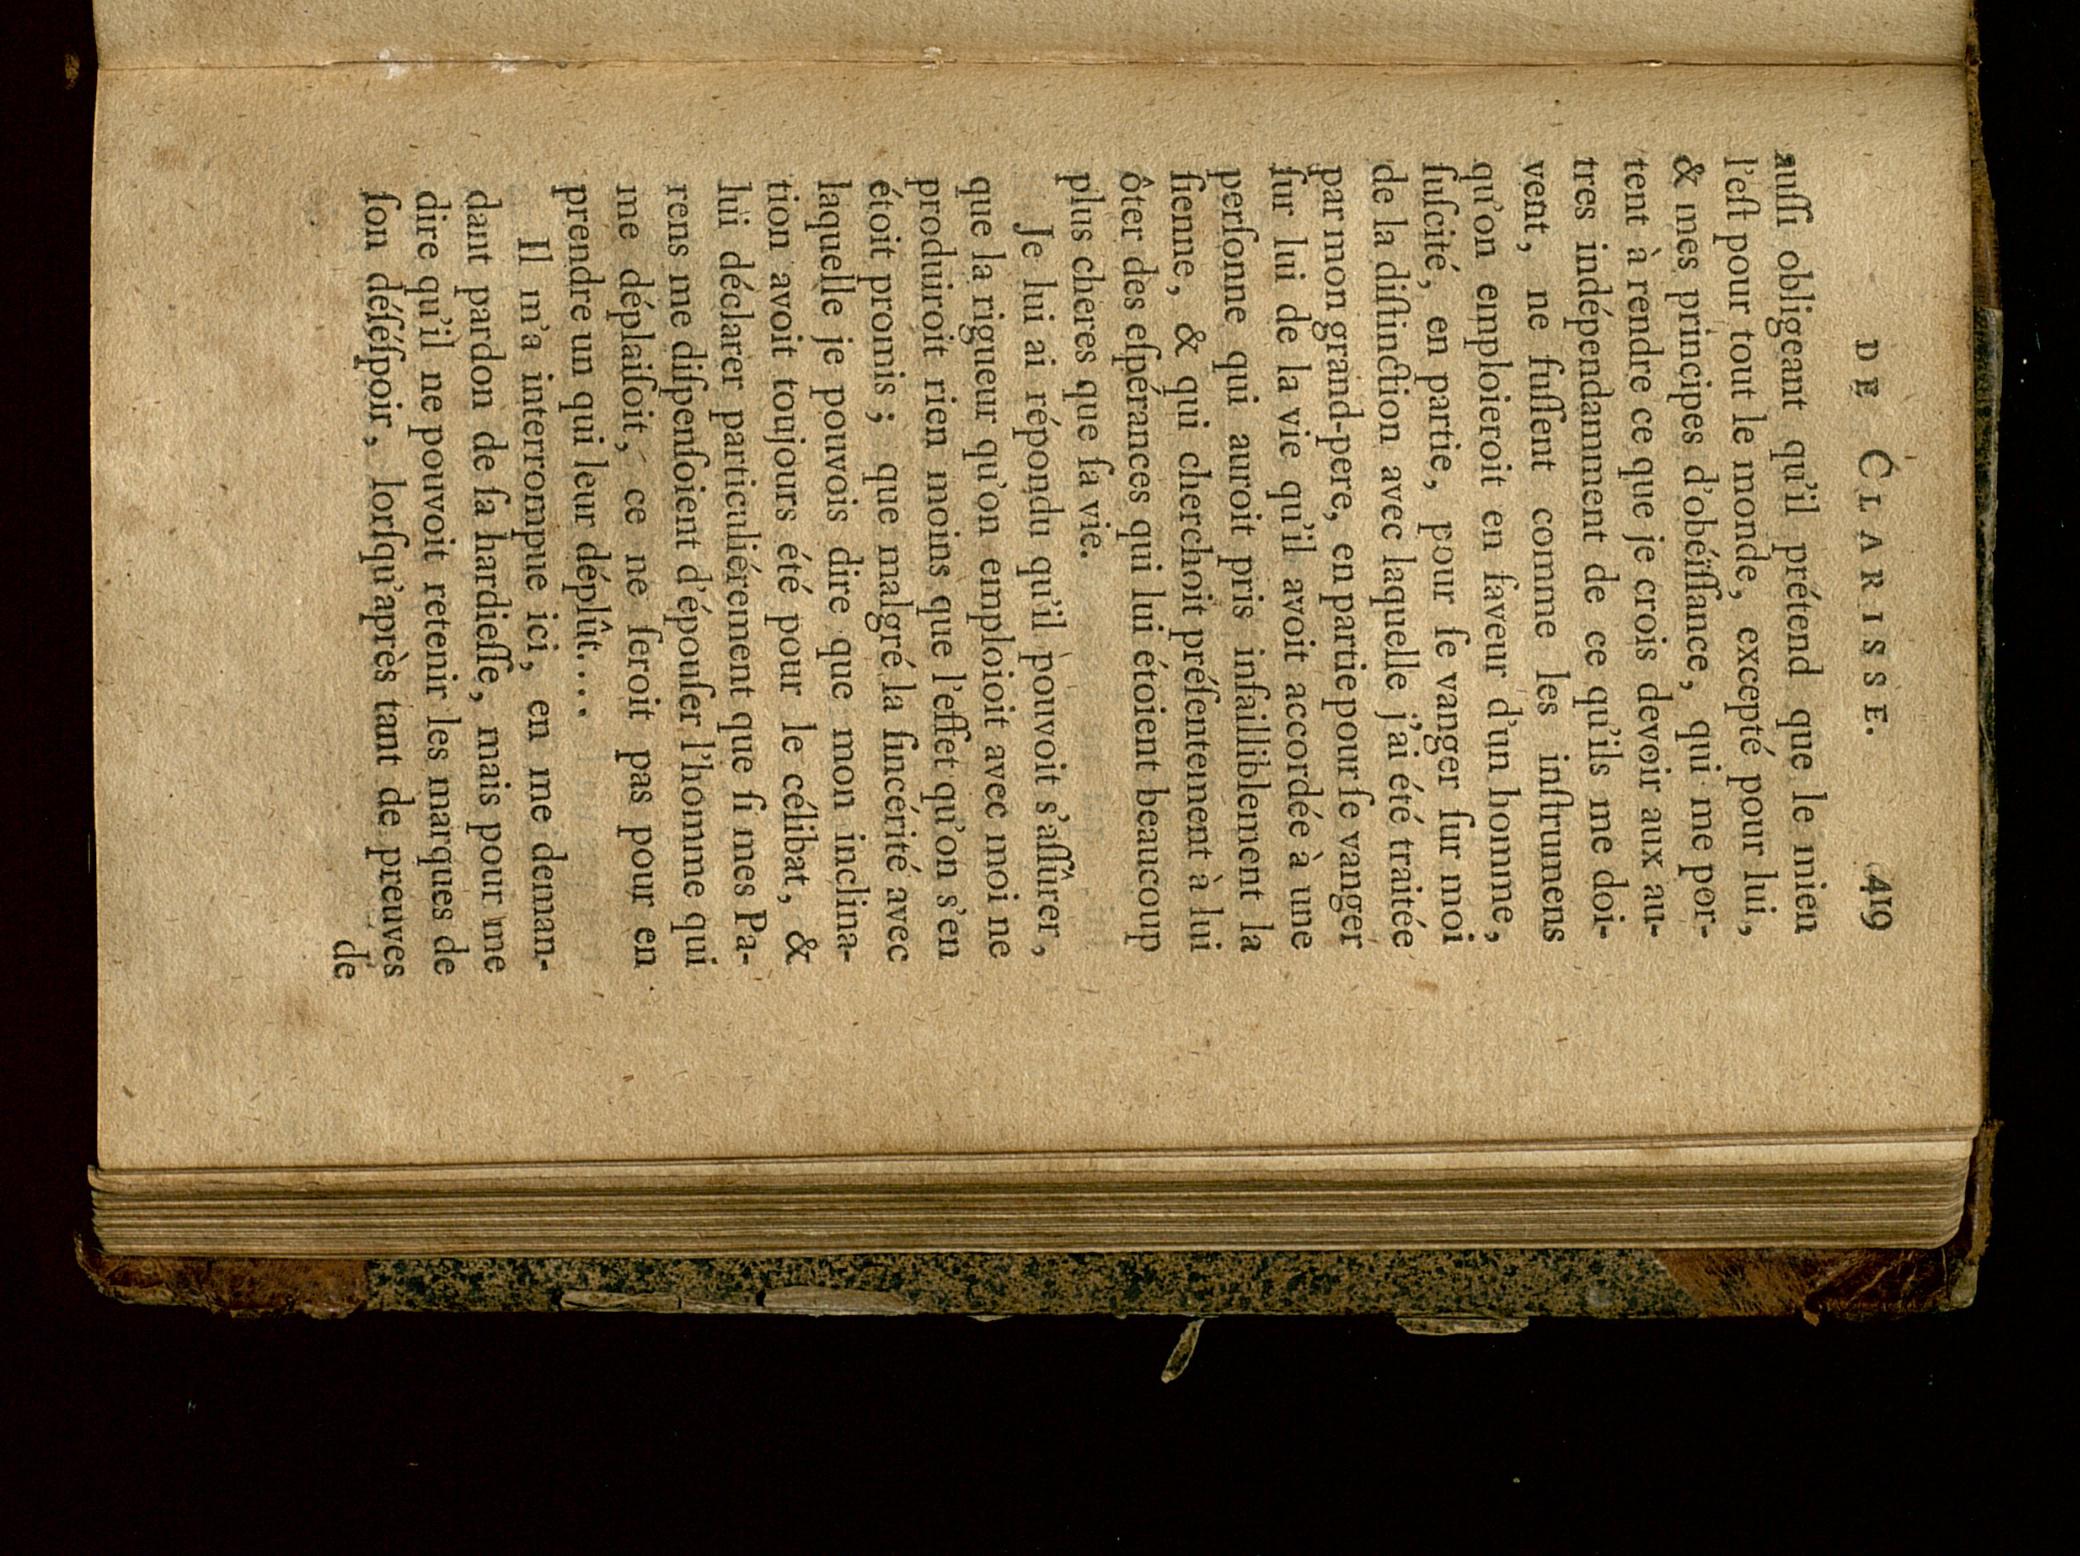 DE CLARISSE. 419
auſſi obligeant qu'il prétend que le mien
l'eſt pour tout le monde, excepté pour lui,
& mes principes d'obéïſſance, qui me por-
tent à rendre ce que je crois devoir aux au-
tres indépendamment de ce qu'ils me doi-
vent, ne fuſſent comme les inſtrumens
qu'on emploieroit en faveur d'un homme,
ſuſcité, en partie, pour ſe vanger ſur moi
de la diſtinction avec laquelle j'ai été traitée
par mon grand-pere, en partie pour ſe vanger
ſur lui de la vie qu'il avoit accordée à une
perſonne qui auroit pris infailliblement la
ſienne, & qui cherchoit préſentement à lui
ôter des eſpérances qui lui étoient beaucoup
plus cheres que ſa vie.
Je lui ai répondu qu'il pouvoit s'aſſûrer,
que la rigueur qu'on emploioit avec moi ne
produiroit rien moins que l'effet qu'on s'en
étoit promis; que malgré la ſincérité avec
laquelle je pouvois dire que mon inclina-
tion avoit toujours été pour le célibat, &
lui déclarer particuliérement que ſi mes Pa-
rens me diſpenſoient d'épouſer l'homme qui
me déplaiſoit, ce ne ſeroit pas pour en
prendre un qui leur déplût....
Il m'a interrompue ici, en me deman-
dant pardon de ſa hardieſſe, mais pour me
dire qu'il ne pouvoit retenir les marques de
ſon déſéſpoir, lorſqu'après tant de preuves
de